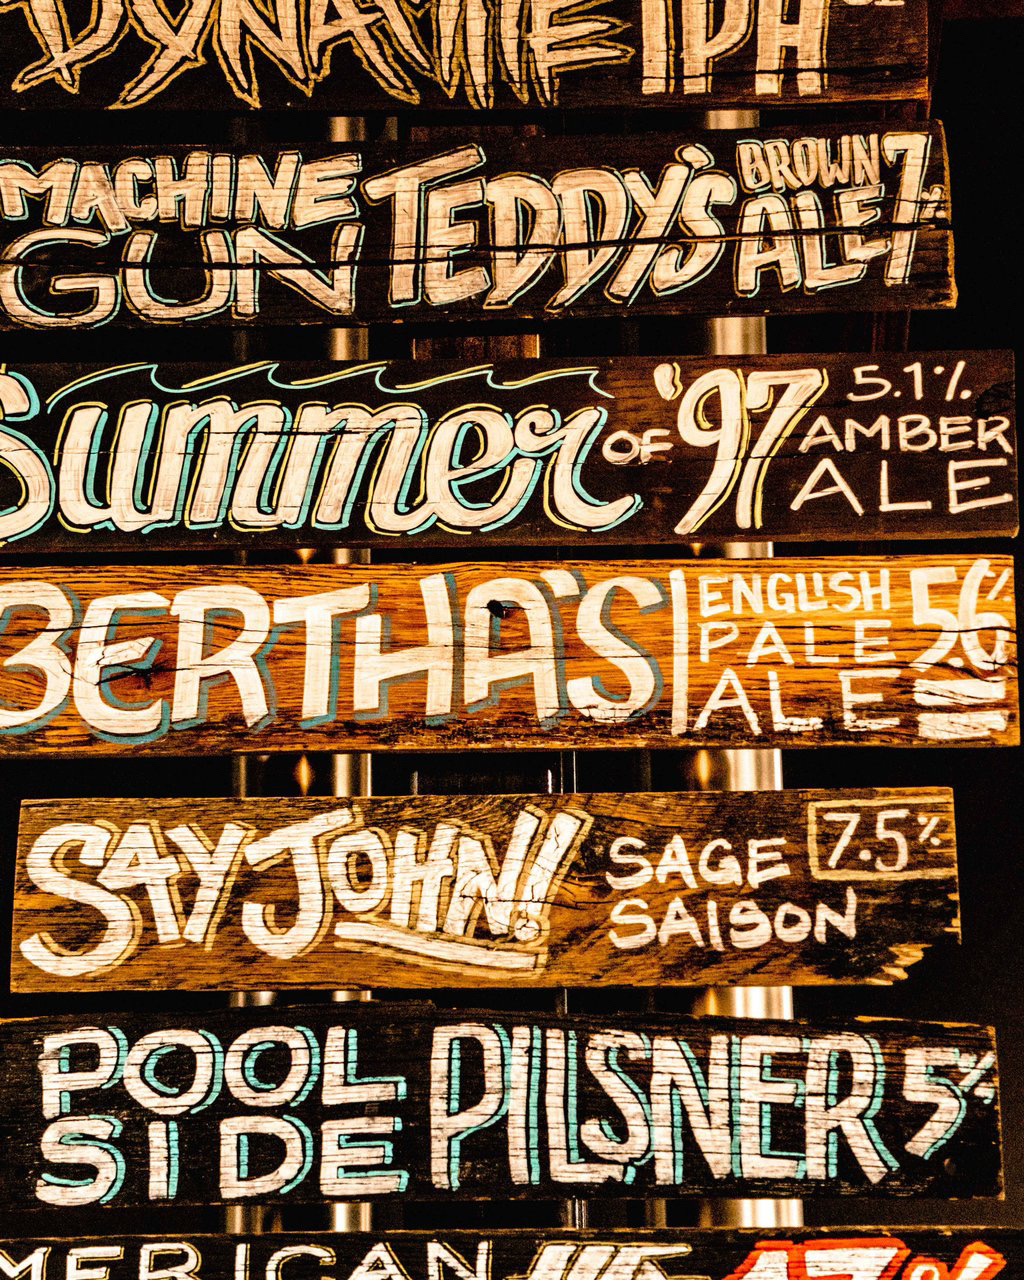 DYNAMITE IPA
MACHINE GUN TEDDY'S BROWN ALE 7%
Summer OF '97 5.1% AMBER ALE
BERTHA'S ENGLISH PALE ALE 5.6%
SAY JOHN!! SAGE SAISON 7.5%
POOL SIDE PILSNER 5%